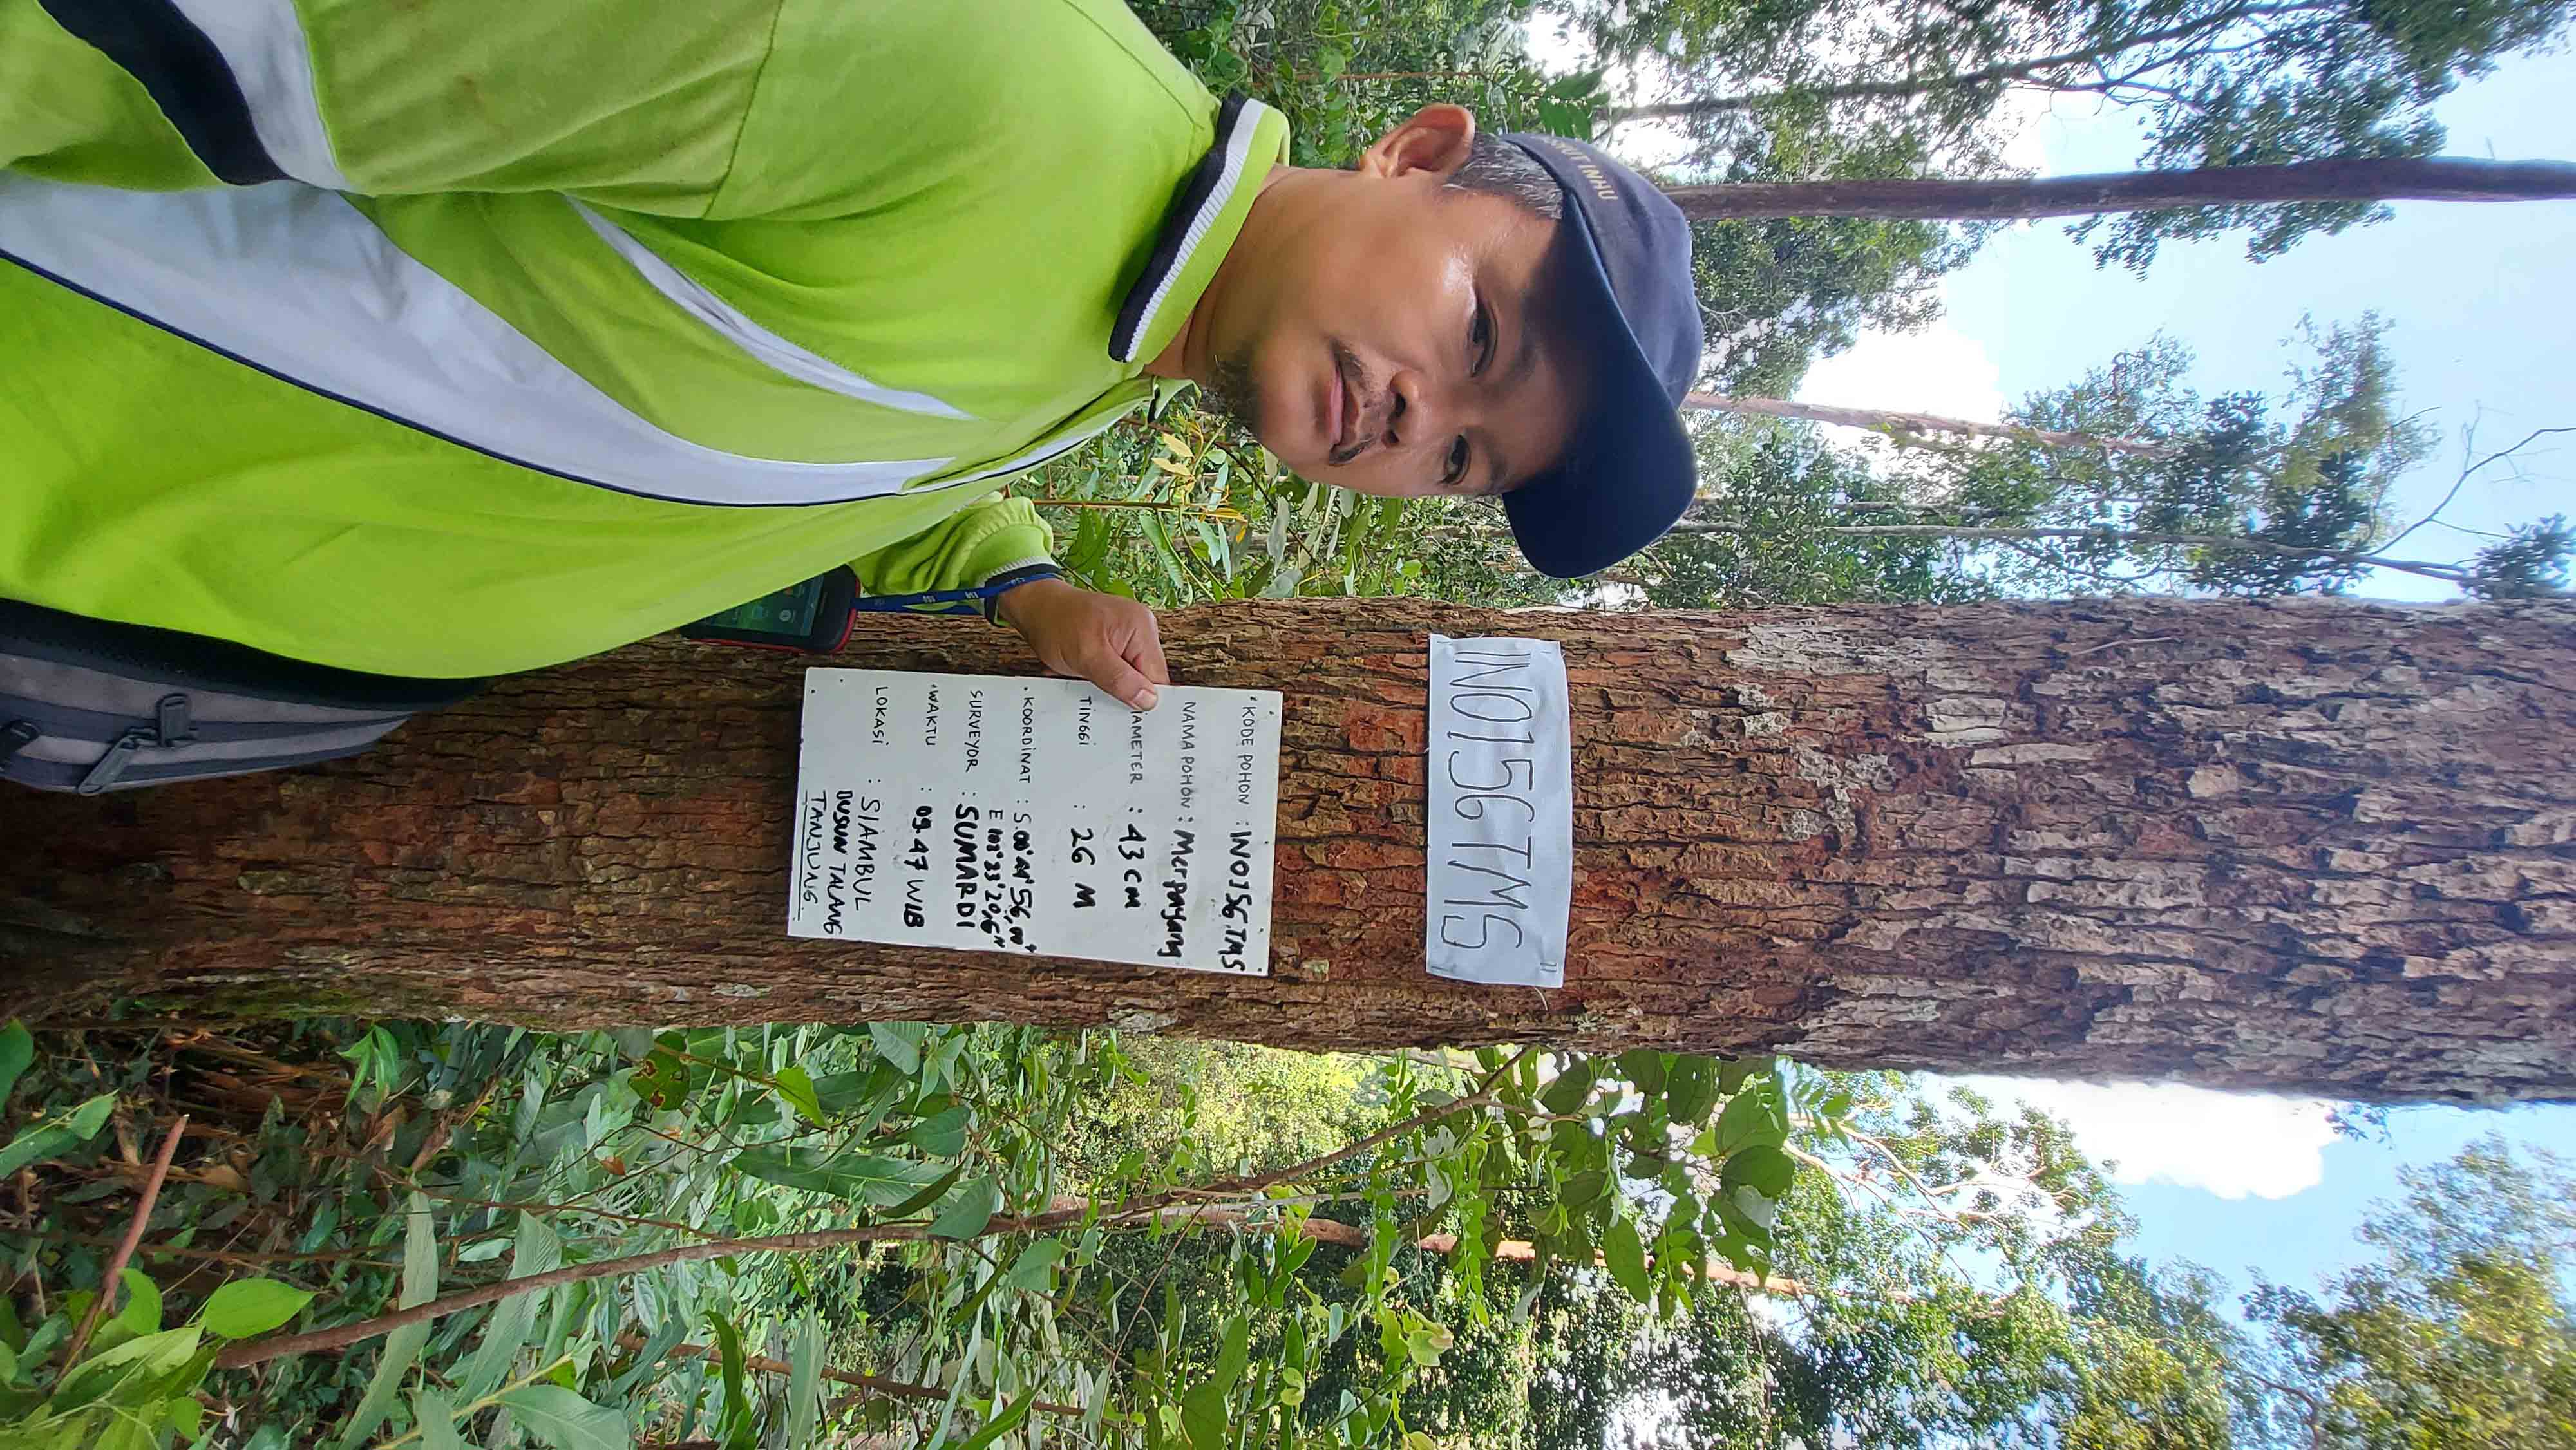 OUT INHU
INO156TMS
KODE POHON : INO156.TMS
NAMA POHON : Merpayang
DIAMETER : 43 CM
TINGGI : 26 M
KOORDINAT : S.00°44'56,00"
E 102°33'20,6"
SURVEYOR : SUMARDI
WAKTU : 09.47 WIB
LOKASI : SIAMBUL
DUSUN TALANG
TANJUNG.